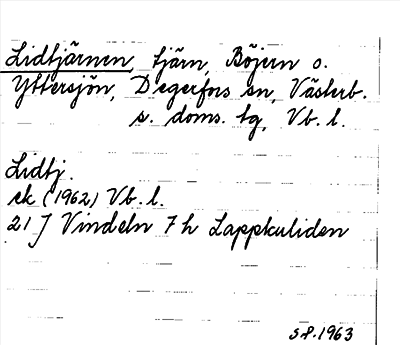 Lidtjärnen, tjärn, Böjern o.
Yttersjön, Degerfors sn, Västerb.
s. doms. tg, Vb. l.
Lidtj.
ek (1962) Vb. l.
21 J Vindeln 7 h Lappkuliden
S.P. 1963